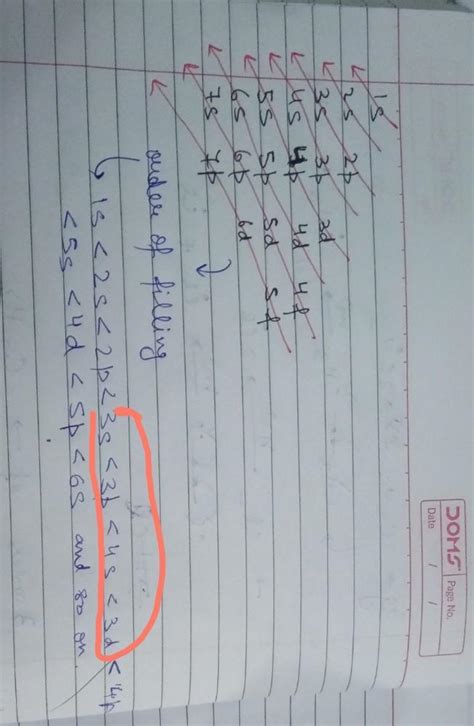 DOMS Page No.
Date / /
1s
2s 2p
3s 3p 3d
4s 4p 4d 4f
5s 5p 5d 5f
6s 6p 6d
7s 7p
order of filling
↳ 1s < 2s < 2p < 3s < 3p < 4s < 3d < 4p
< 5s < 4d < 5p < 6s and so on.